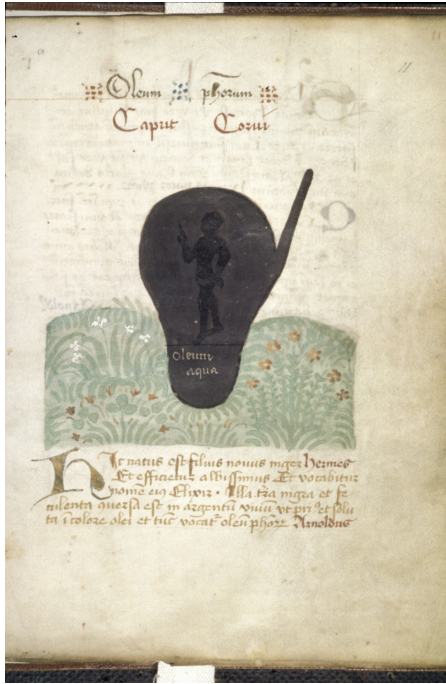 Oleum phorum
Caput Corui
oleum
aqua
Hic natus est filius novus niger Hermes
Et efficietur albissimus Et vocabitur
nome eius Elixir. Illa tra nigra et fe
culenta quersa est in argentu vivu ut pri et solu
ta i colore olei et tuc vocat oleu phorr Arnoldus
11